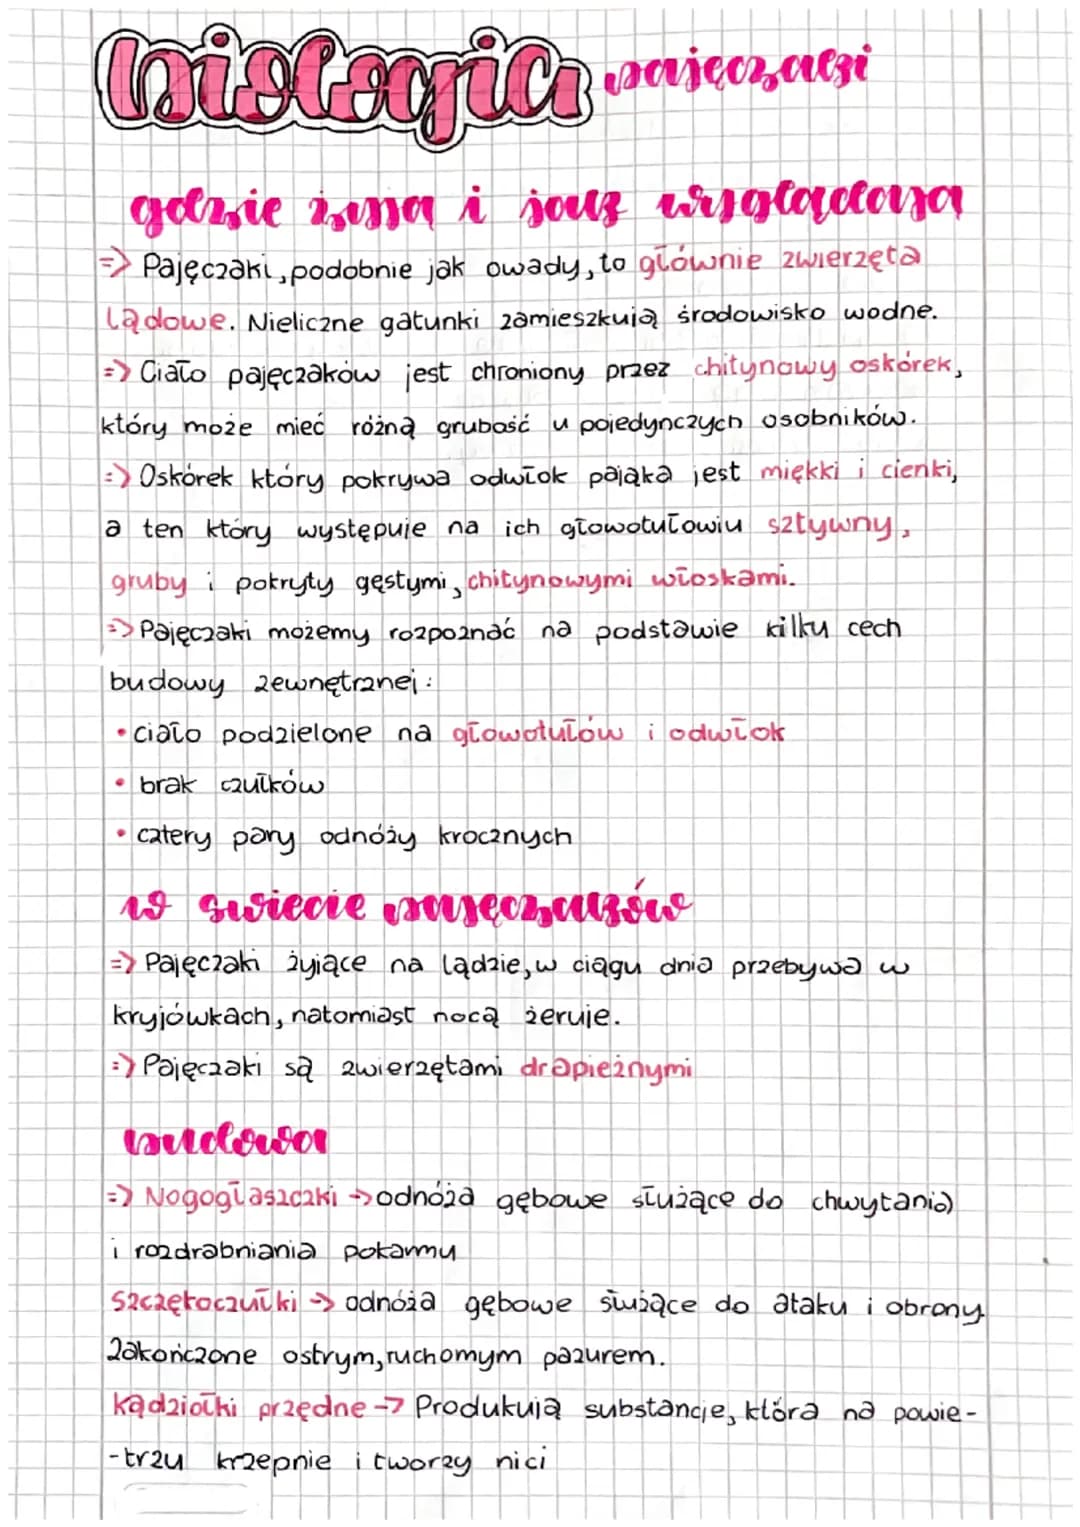 biologia pajęczaki
gdzie żyją i jak wyglądają
=> Pajęczaki, podobnie jak owady, to głównie zwierzęta
lądowe. Nieliczne gatunki zamieszkują środowisko wodne.
=> Ciało pajęczaków jest chroniony przez chitynowy oskórek,
który może mieć różną grubość u pojedynczych osobników.
=> Oskórek który pokrywa odwłok pająka jest miękki i cienki,
a ten który występuje na ich głowotułowiu sztywny,
gruby i pokryty gęstymi, chitynowymi włoskami.
=> Pajęczaki możemy rozpoznać na podstawie kilku cech
budowy zewnętrznej:
• ciało podzielone na głowotułów i odwłok
• brak czułków
• cztery pary odnóży krocznych
w świecie pajęczaków
=> Pajęczaki żyjące na lądzie, w ciągu dnia przebywa w
kryjówkach, natomiast nocą żeruje.
=> Pajęczaki są zwierzętami drapieżnymi
budowa
=> Nogogłaszczki -> odnóża gębowe służące do chwytania
i rozdrabniania pokarmu
Szczękoczułki -> odnóża gębowe służące do ataku i obrony
Zakończone ostrym, ruchomym pazurem.
Kądziołki przędne -> Produkują substancje, która na powie-
-trzu krzepnie i tworzy nici